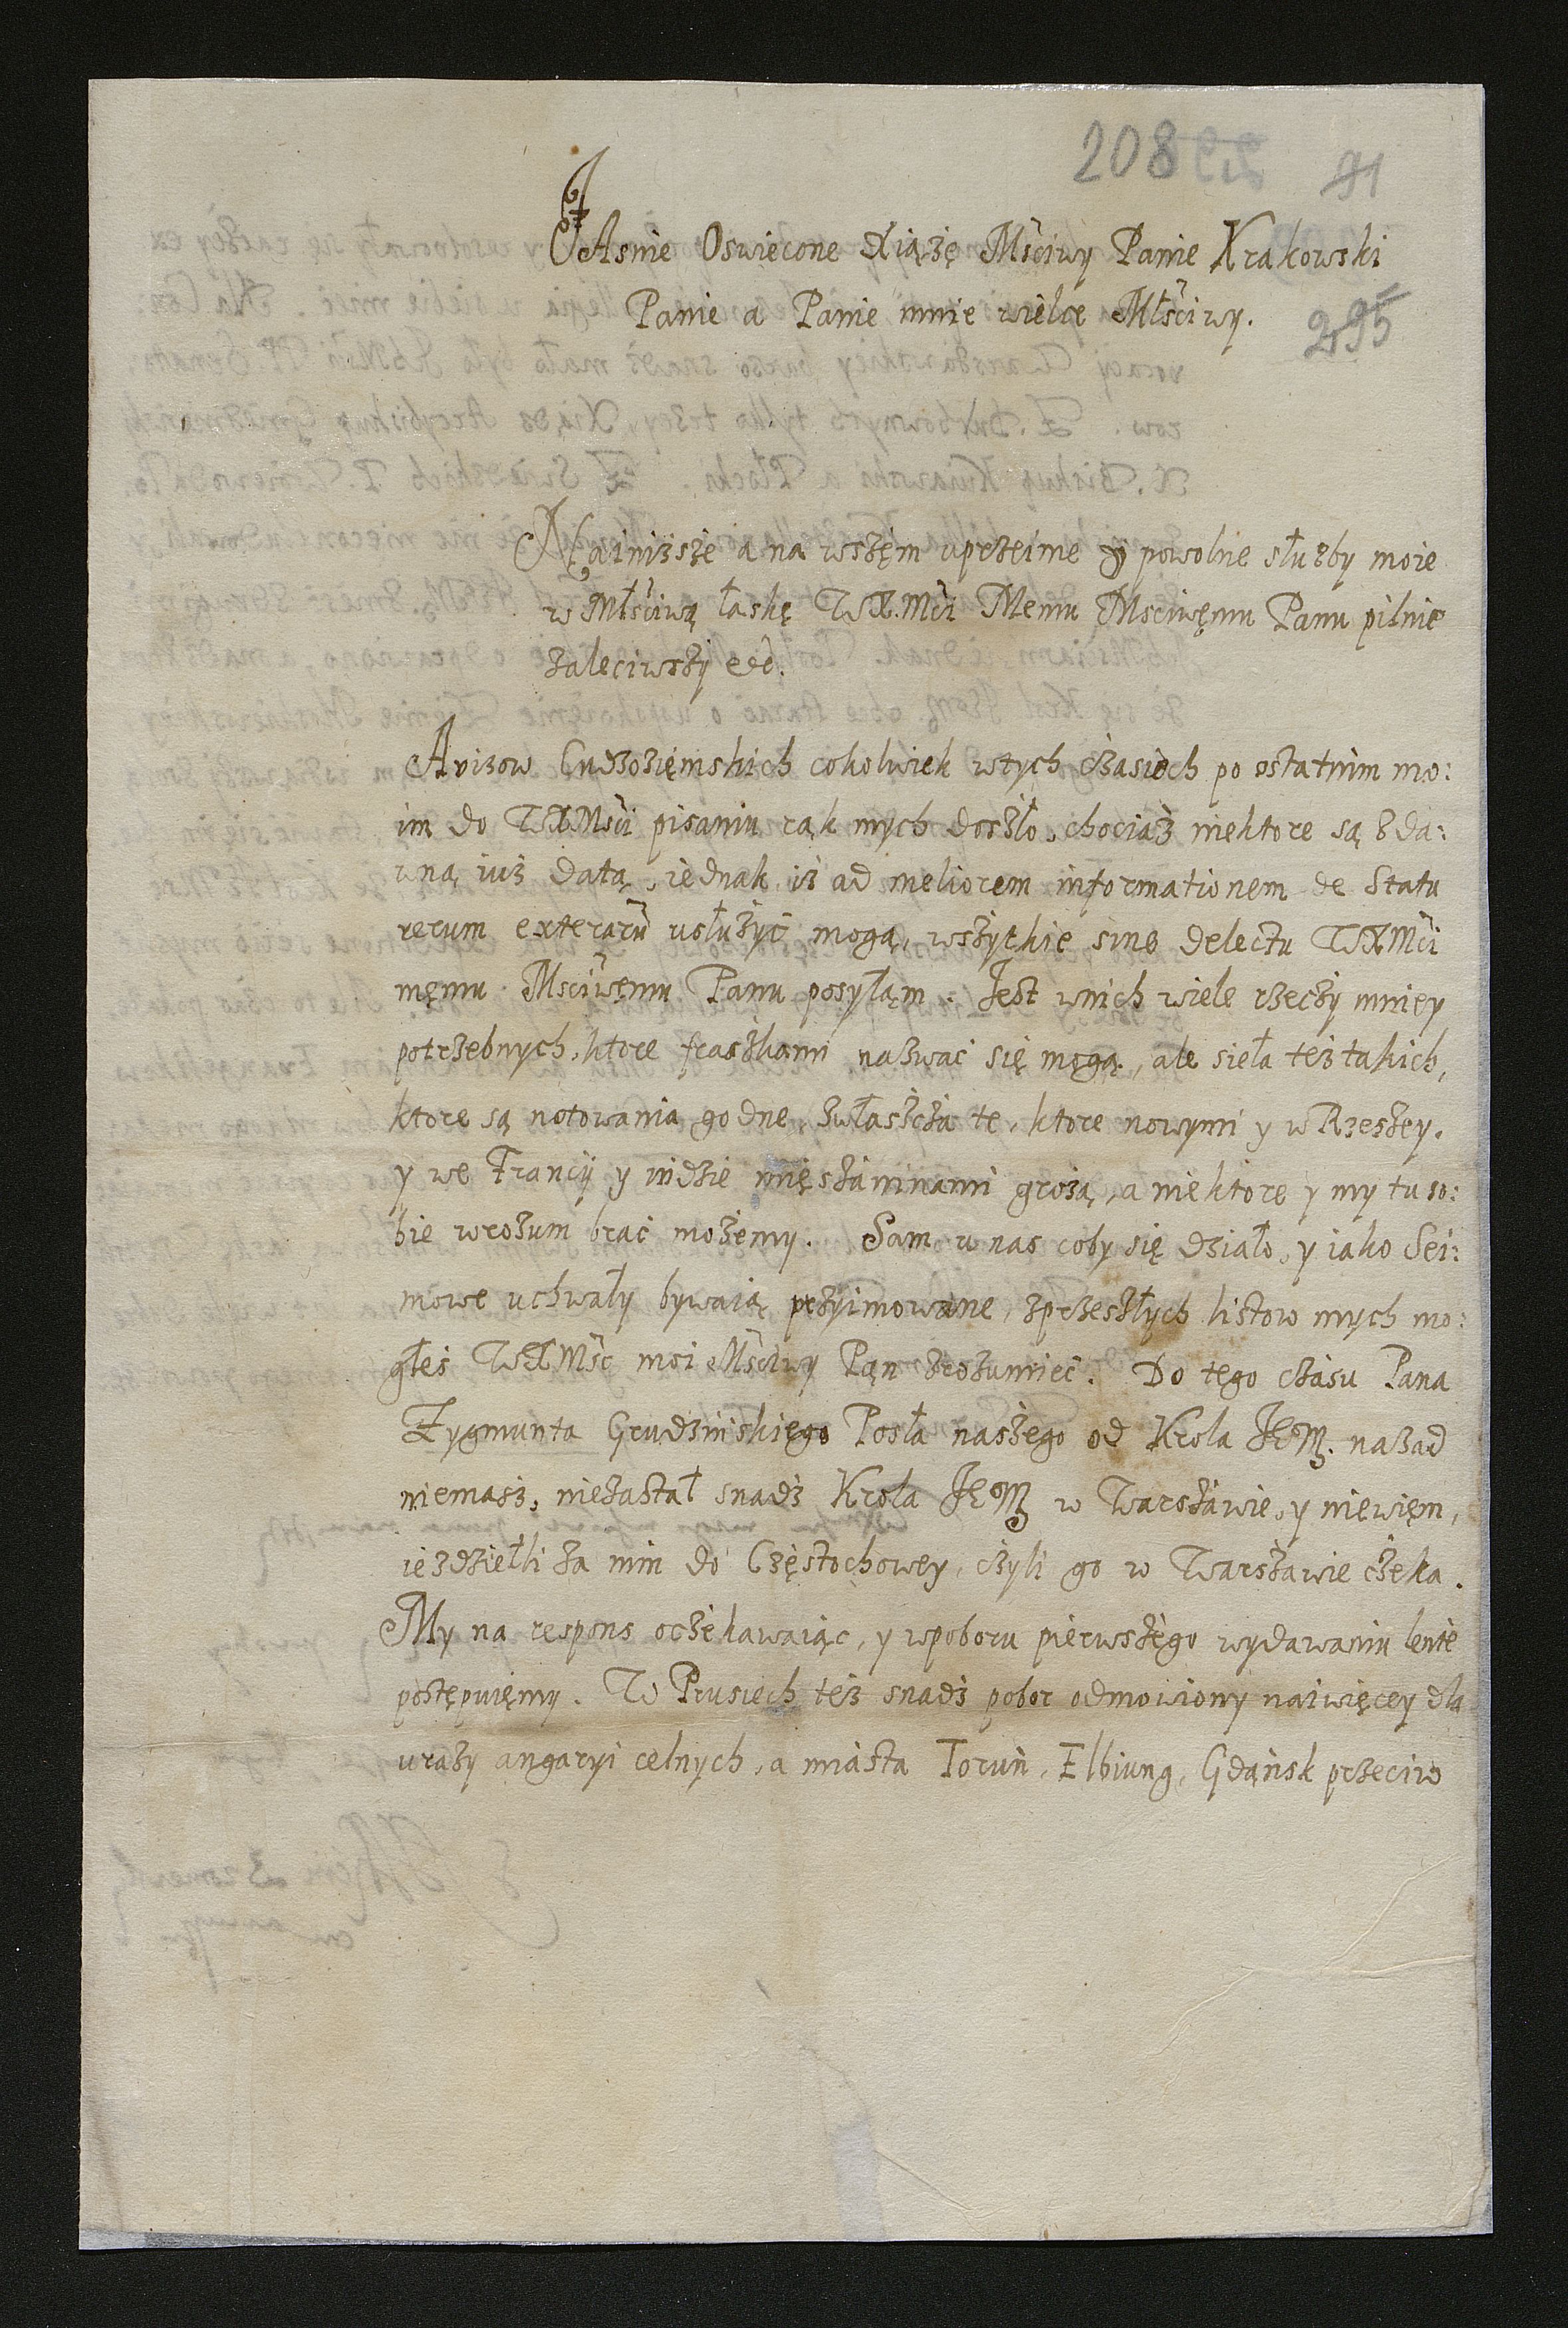 208
91
JAsnie Oswiecone Xiążę Mśćiwy Panie Krakowski
Panie a Panie mnie wielce Młśćiwy.
295
Nainiższe a na wszęm uprzeime y powolne służby moie
w Młśćiwą łaskę WXMći Memu Msciwęmu Panu pilnie
zaleciwszy etc.
Avizow Cudzozięmskich cokolwiek wtych czasiech po ostatnim mo:
im do WXMśći pisaniu rąk mych doszło, chociaż niektore są z da:
wną iuż datą, iednak iż ad meliorem informationem de Statu
rerum exterarū usłużyć mogą, wszytkie sine delectu WXMći
męmu Mśćiwęmu Panu posyłąm. Jest wnich wiele rzeczy mniey
potrzebnych, ktore fraszkami nazwać się mogą, ale siela też takich,
ktore są notowania godne, zwłaszcza te, ktore nowymi y w Rzeszey,
y we Francij y indzie mięszaninami grożą, a niektore y my tu so:
bie wrozum brać możemy. Sam u nas coby się działo, y iako Sei:
mowe uchwały bywaią przyimowane, zprzeszłych listow mych mo:
głeś WXMść moi Mśćiwy Pąn zrozumieć. Do tego czasu Pana
Zygmunta Grudzinskięgo Posła naszego od Krola JEM. nazad
niemasz, niezastał snadź Krola JEM w Warszawie, y niewięm,
iezdziełli za nim do Częstochowey, czyli go w Warszawie czeka.
My na respons oczekawaiąc, y wpoboru pierwszęgo wydawaniu lente
postępuięmy. W Prusiech też snadź pobor odmowiony naiwięcey dla
urazy angaryi celnych, a miasta Toruń, Elbiung, Gdańsk przeciw